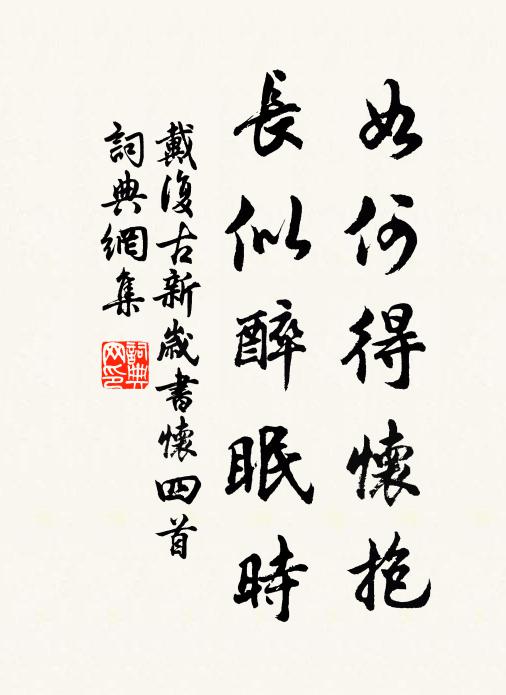 如何得懷抱
長似醉眠時
戴復古新歲書懷四首
詞典網集
詞典网印